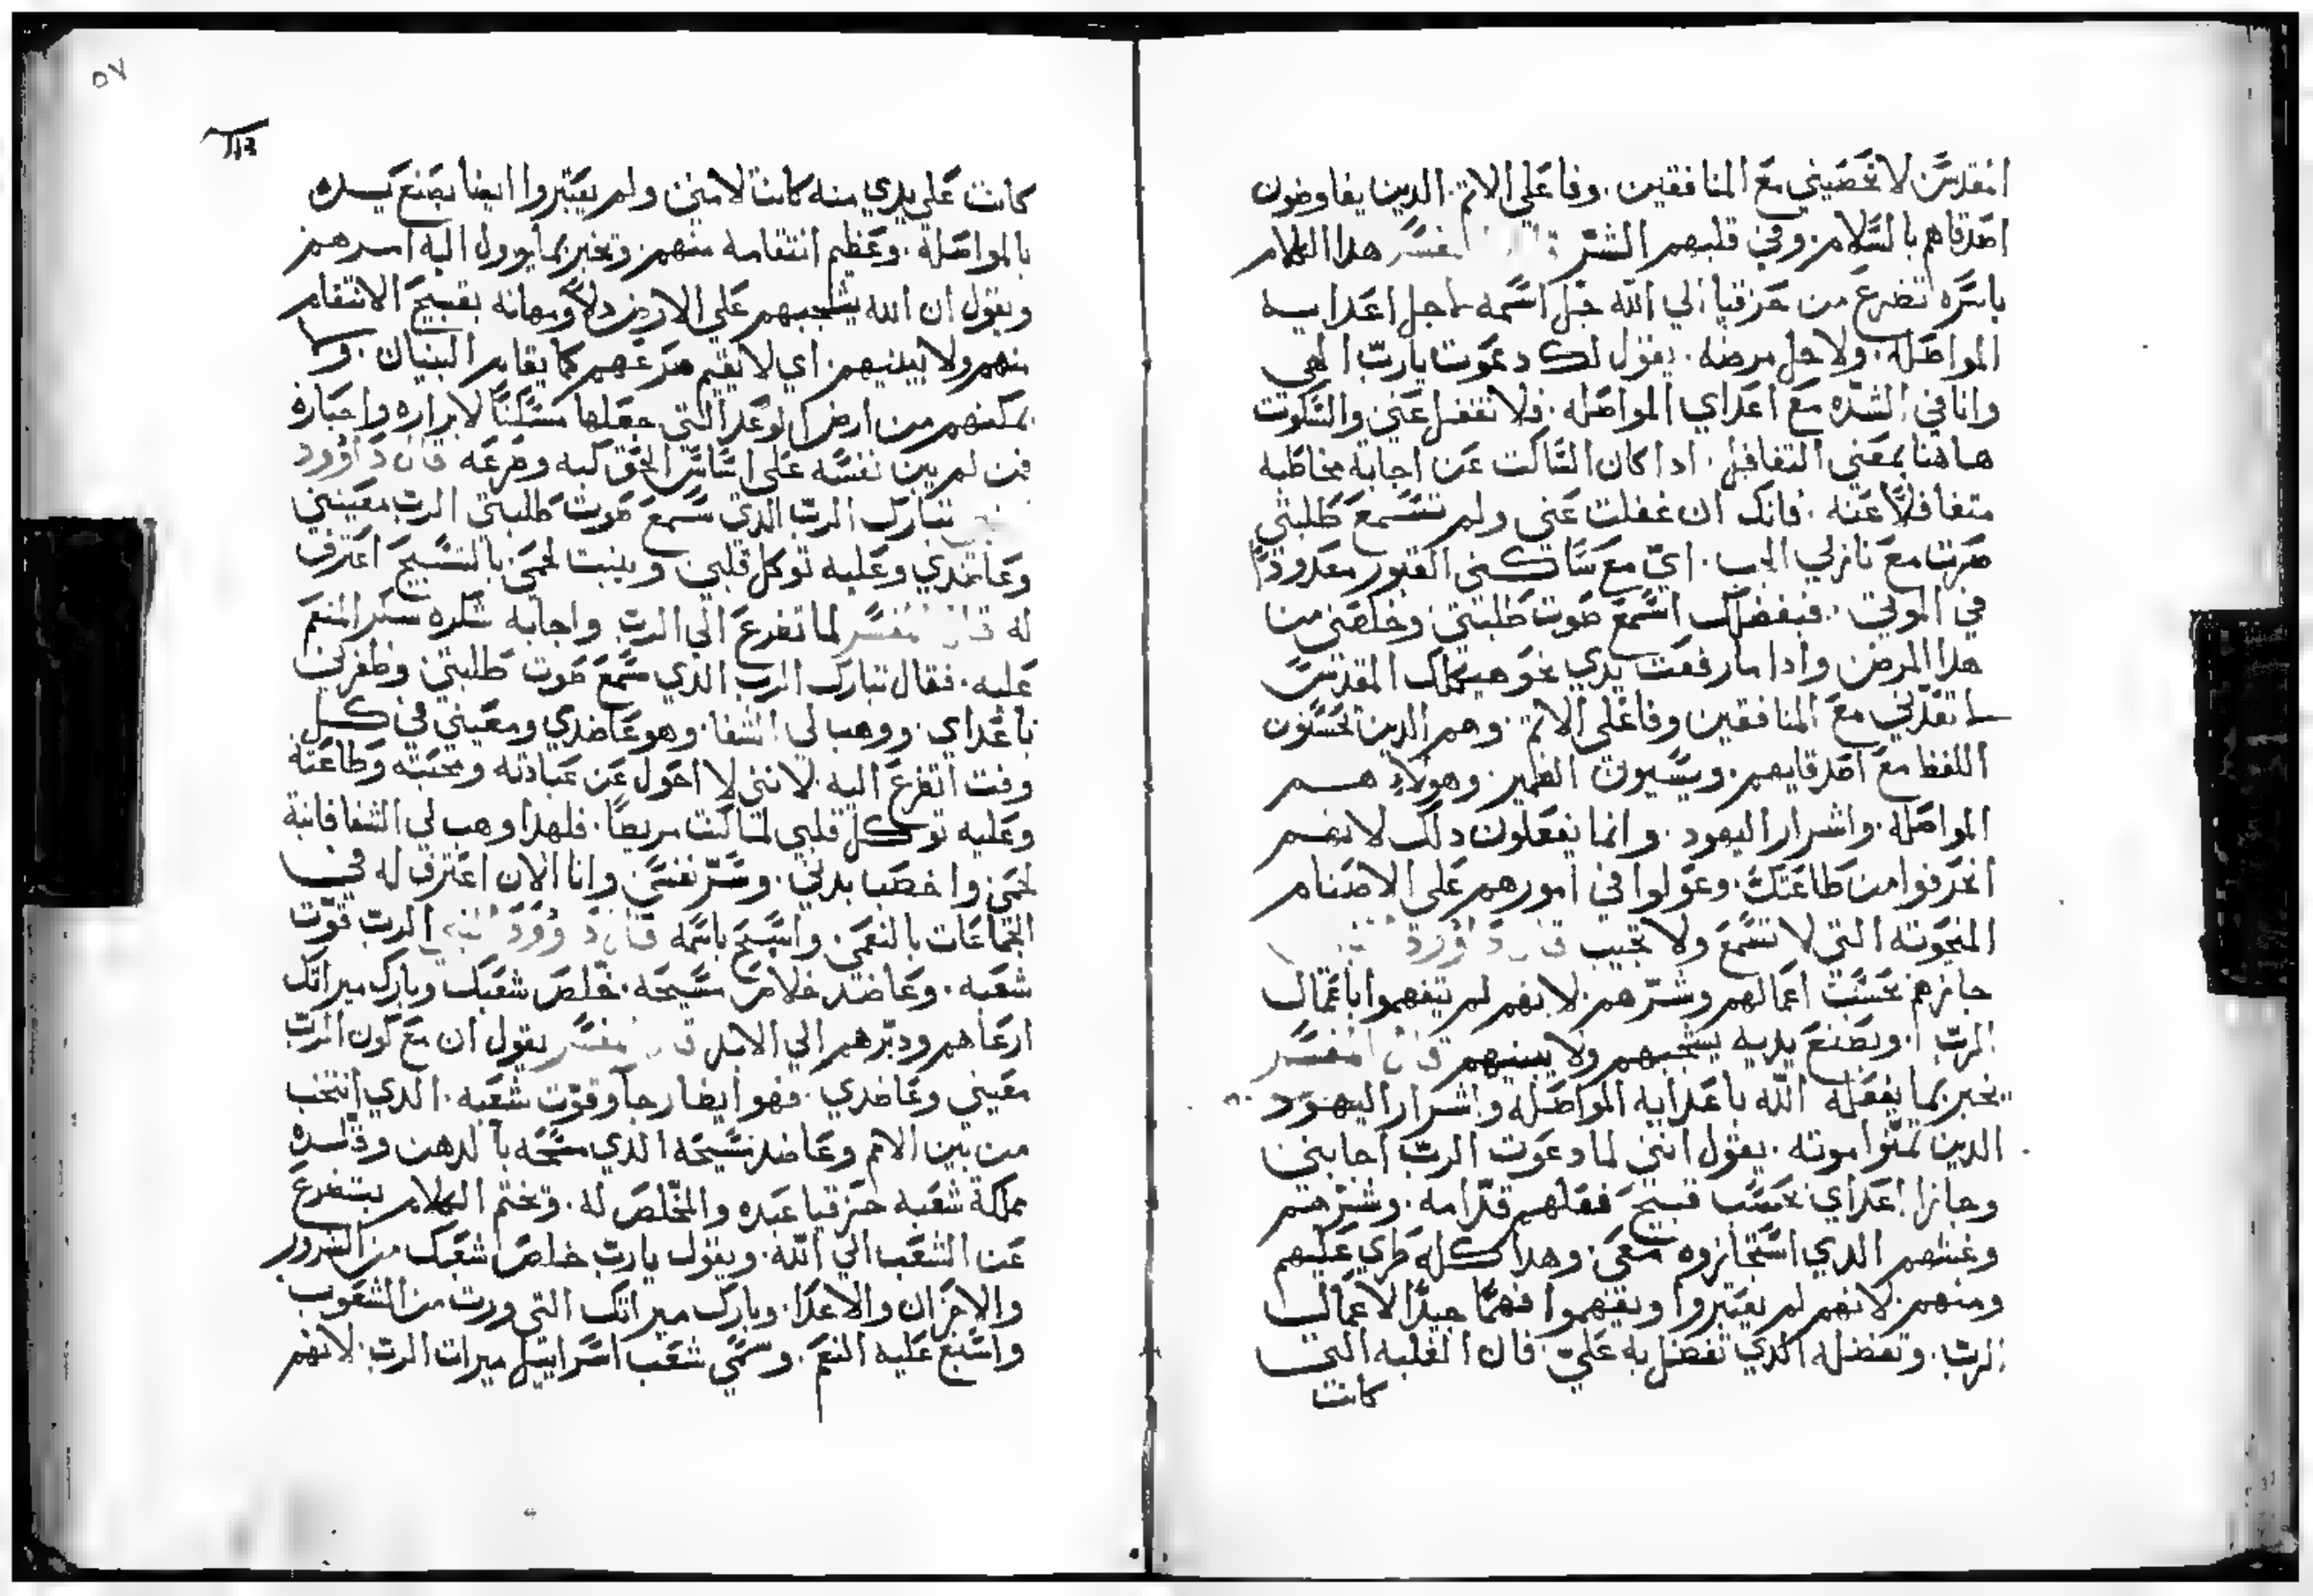 المقدس لا تحصيني مع المنافقين. وفاعلي الاتم. الدين يفاوضون
اصدقاهم بالسلام. وفي قلبهم الشر المفسر هدا الكلام
باسره تضرع من حزقيا الي الله جل اسمه لاجل اعدايه
المواصله. ولاجل مرضه. يقول لك دعوت يارب الهي
وانا في الشده مع اعداي المواصله. فلا تغفل عني والسكوت
هاهنا بمعني التغافل. ادا كان الساكت عن اجابة مخاطبه
متغافلاً عنه. فانك ان غفلت عني ولم تسمع طلبتي
صرت مع نازلي الجب. اي مع ساكني القبور معدودًا
في الموتي. فبفضلك اسمع صوت طلبتي وخلصني من
هدا المرض وادا ما رفعت يدي نحو هيكلك المقدس
لا تعدني مع المنافقين وفاعلي الاتم. وهم الدين يحسنون
اللفظ مع اصدقايهم. ويسيون الضمير. وهولاء هم
المواصله. واشرار اليهود. وانما يفعلون دلك لانهم
انحرفوا من طاعتك. وعولوا في امورهم علي الاصنام
المنحوته التي لا تسمع ولا تجيب قال داوود النبي
جازهم بحسب اعمالهم وشرهم. لانهم لم يتفهموا باعمال
الرب. وبصنع يديه يشجبهم ولا يبنيهم قال المفسر
يخبر بما يفعله الله باعدايه المواصله واشرار اليهود
الدين تمنوا موته. يقول انني لما دعوت الرب اجابني
وجازا اعداي بحسب قبيح فعلهم قدامه. وشرهم
وغشهم الدي استجازوه معي. وهدا كله طري عليهم
ومنهم. لانهم لم يعتبروا ويفهموا فهمًا جيدًا لاعمال
الرب. وتفضله الدي تفضل به علي. فان الغلبه التي
كانت
٥٧
كانت علي يدي منه كانت لا مني ولم يعتبروا ايضا بصنع يده
بالمواصلة. وعظيم انتقامه منهم. وتخبر بما يوول اليه امرهم
ويقول ان الله يشجبهم علي الارض دلاً ومهانه بقبيح الانتقام
منهم ولا يبنيهم. اي لا يقيم صرعهم كما يقام البنيان. ولا
يمكنهم من ارض الوعد التي جعلها مسكنًا لابراره واخياره
فمن لم يبن نفسه علي اساس الحق كبه وصرعه قال داوود
تبارك الرب الدي سمع صوت طلبتي الرب معيني
وعاضدي وعليه توكل قلبي وينبت لحمي بالتسبيح اعترف
له قال المفسر لما تضرع الي الرب واجابه شكره شكر المنعم
عليه. فقال تبارك الرب الدي سمع صوت طلبتي وظفرني
باعداي. ووهب لي الشفا. وهو عاضدي ومعيني في كل
وقت اتضرع اليه. لانني لا احول عن عبادته ومحبته وطاعته
وعليه توكل قلبي لما كنت مريضًا. فلهدا وهب لي الشفا فانبة
لحمي واخصب بدني. وسر نفسي. وانا الان اعترف له في
الجماعات بالنعمي. واسبح باسمه قال داوود النبي الرب قوت
شعبه. وعاضد خلاص مسيحه. خلص شعبك وبارك ميراتك
ارعاهم ودبرهم الي الابد قال المفسر يقول ان مع كون الرب
معيني وعاضدي. فهو ايضا رجا وقوت شعبه. الدي انتخب
من بين الامم وعاضد مسيحه الدي مسحه بالدهن وقلده
مملكة شعبه حزقيا عبده والمخلص له. وتختم الكلام بتضرع
عن الشعب الي الله. ويقول يارب خلص شعبك من الشرور
والاحزان والاعدا. وبارك ميراتك التي ورت من الشعوب
واسبغ عليه النعم. وسمي شعب اسراييل ميرات الرب. لانهم